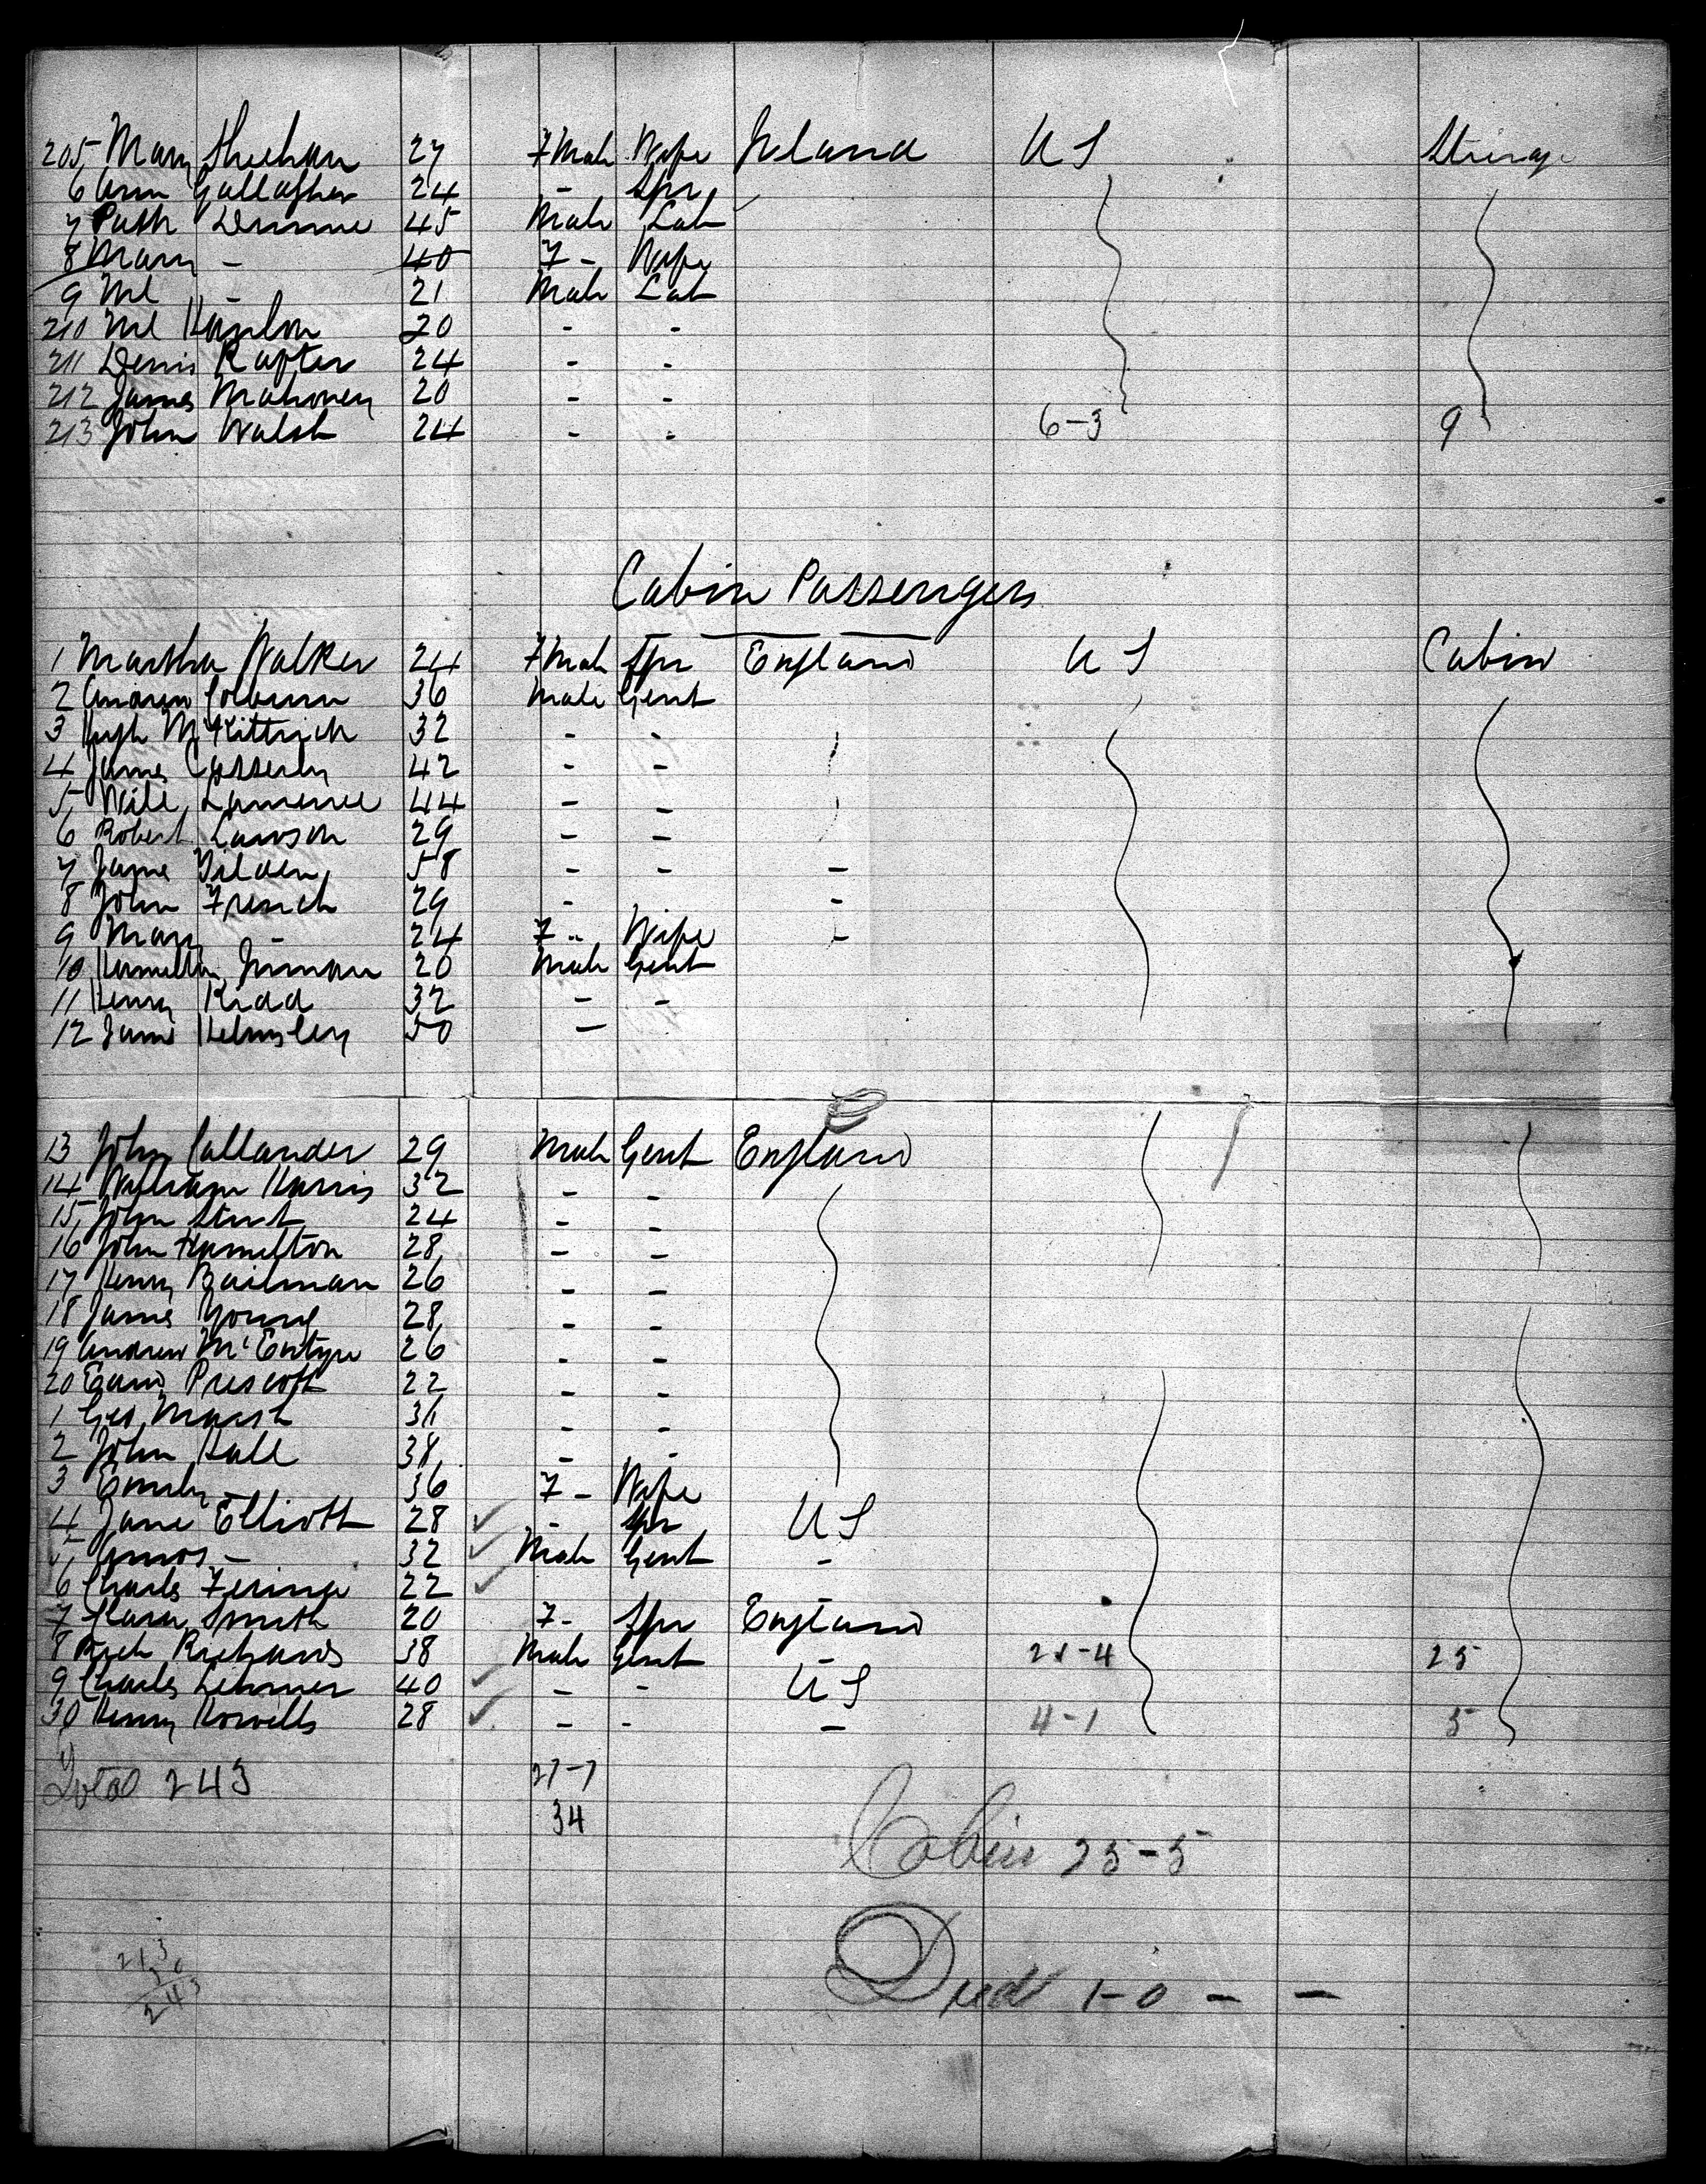 205 Mary Sheehan 27 Fmale Wife Ireland U S Steerage
6 Ann Gallagher 24 - Spr
7 Patk 45 Male Lab
8 Mary - 40 F - Wife
9 Ml - 21 Male Lab
210 Ml Hanlon 20 - -
211 Denis Rafter 24 - -
212 James Mahoney 20 - -
213 John Walsh 24 - - 6-3 9
Cabin Passengers
1 Martha Walker 24 Fmale Spr England U S Cabin
2 Andrew 36 Male Gent
3 Hugh McKittrick 32 - -
4 James Casserly 42 - -
5 Will Lawrence 44 - -
6 Robert Lawson 29 - -
7 James Tilden 58 - - -
8 John French 29 - -
9 Mary - 24 F - Wife -
10 Hamilton Inman 20 Male Gent
11 Henry Kidd 32 - -
12 James Helmsley 50 -
13 John Callander 29 Male Gent England
14 William Harris 32 - -
15 John 24 - -
16 John Hamilton 28 - -
17 Henry 26 - -
18 James Young 28 - -
19 Andrew McEntyre 26 - -
20 Prescott 22 - -
1 Geo Marsh 31 - -
2 John Hall 38 - -
3 Emily - 36 F - Wife
4 Jane Elliott 28 - Spr U S
5 Amos - 32 Male Gent -
6 Charles 22
7 Clara Smith 20 F - Spr England
8 Rich Richards 38 Male Gent - 21-4 25
9 Charles 40 - - U S
30 Henry Howells 28 - - - 4-1 5
Total 243 27-7
34
Cabin 25-5
Died 1-0 - -
213
30
243